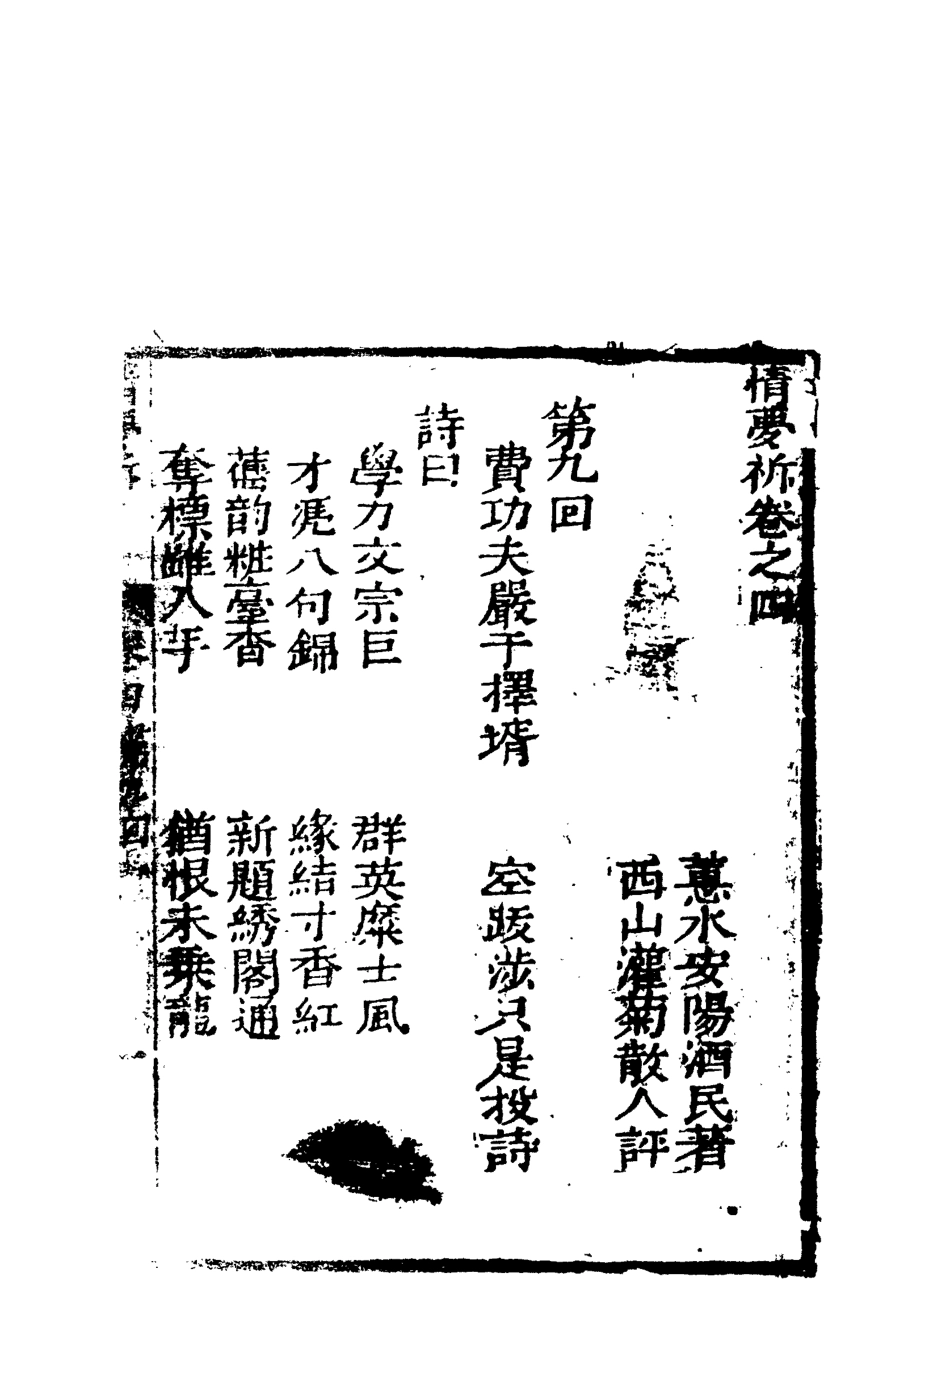 情夢柝卷之四
蕙水安陽酒民著
西山灌菊散人評
第九回
費功夫嚴于擇壻　空跋涉只是投詩
詩曰
學力文宗巨　群英糜士風
才凭八句錦　緣結寸香紅
舊韵粧臺香　新題綉閣通
奪標雖入手　猶恨未乗龍